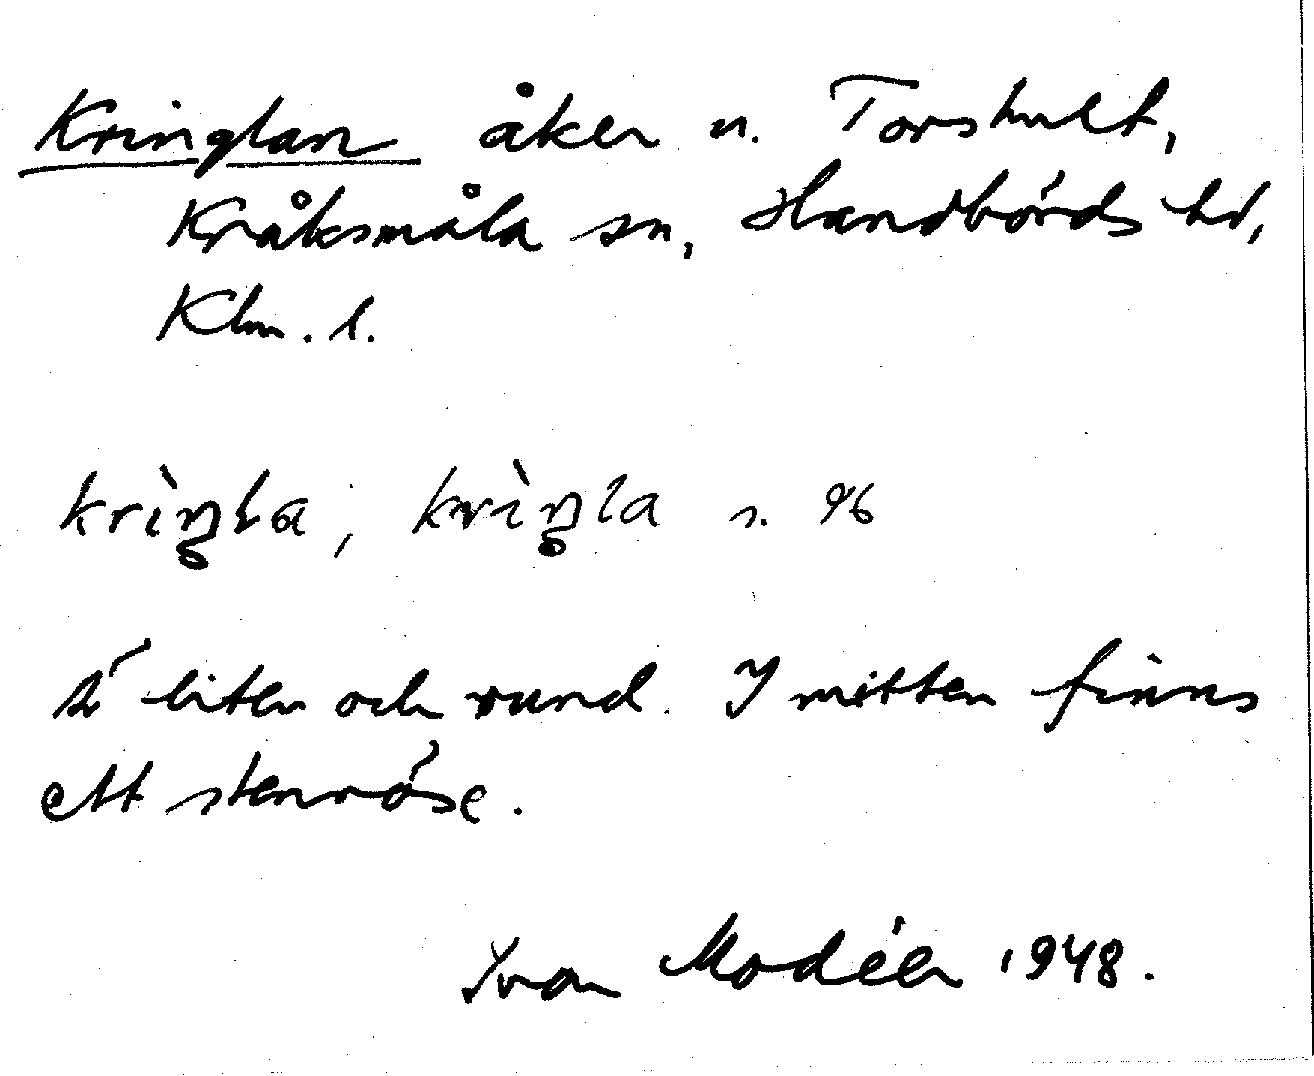 Kringlan åker u. Torshult,
Kråksmåla sn, Handbörds hd,
Klm. l.
krìŋla, krìŋla s. 96
Är liten och rund. I mitten finns
ett stenröse.
Ivar Modéer 1948.